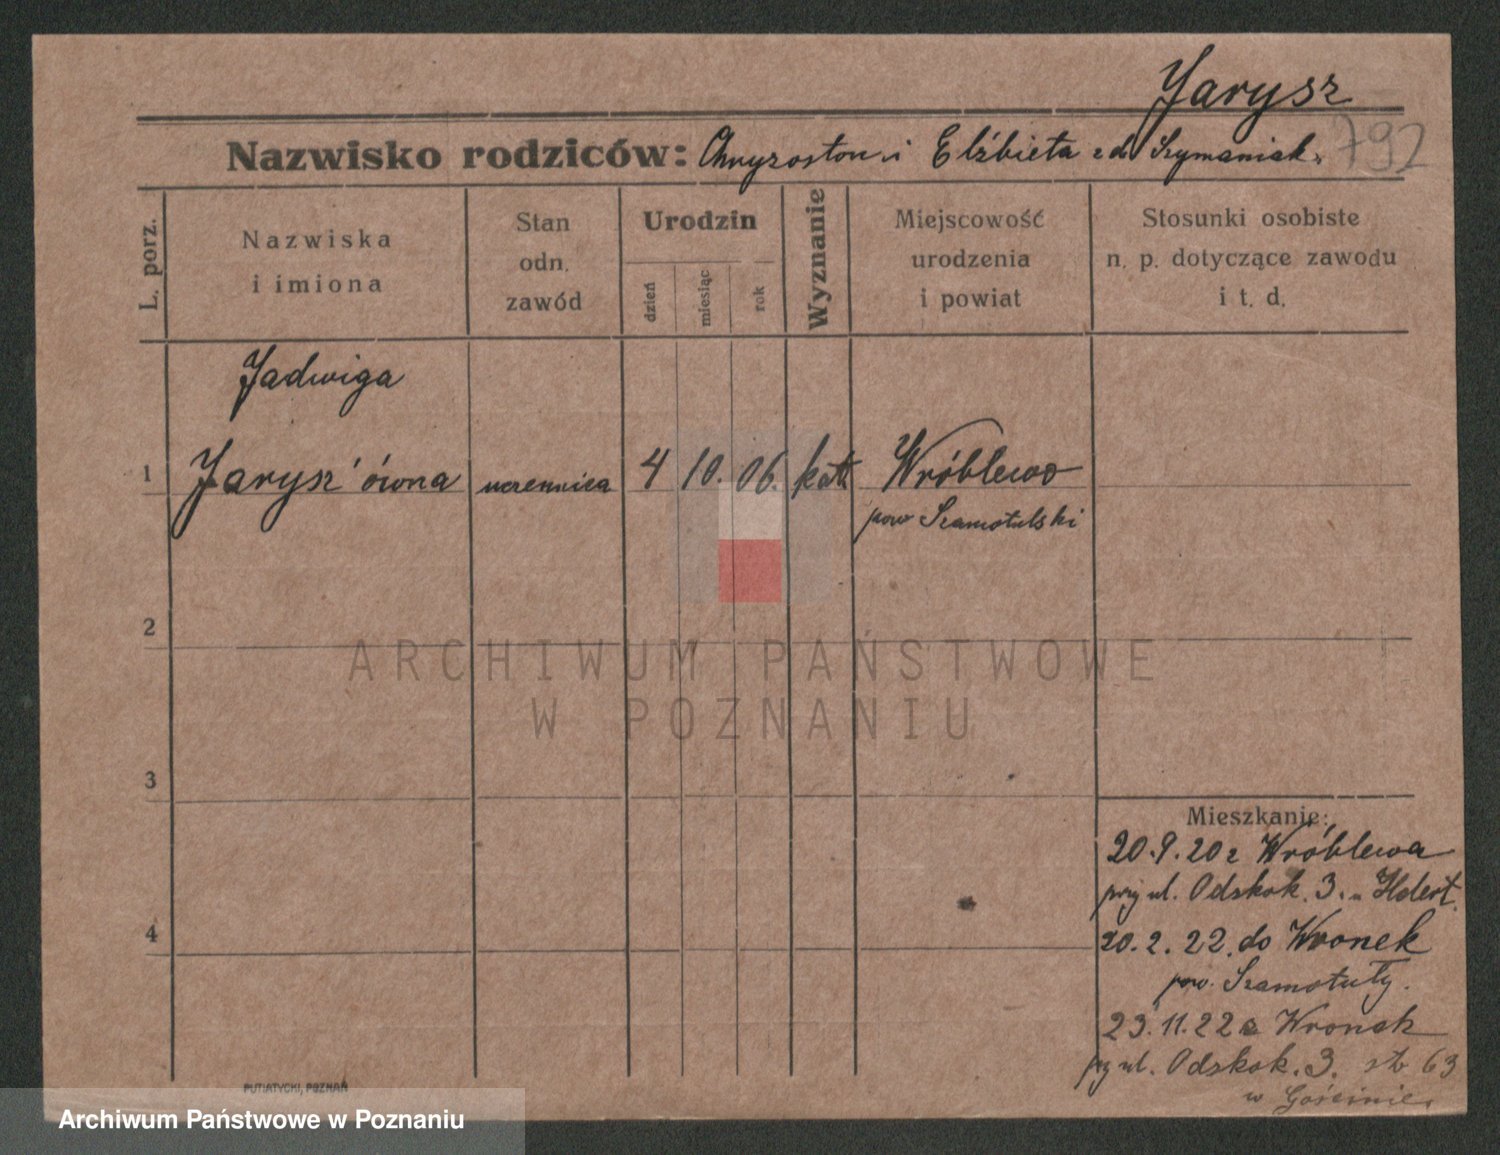 Jarysz
792
Nazwisko rodziców: Chryzostom i Elżbieta z d. Szymaniak.
L. porz.
Nazwiska
i imiona
Stan
odn.
zawód
Urodzin
dzień
miesiąc
rok
Wyznanie
Miejscowość
urodzenia
i powiat
Stosunki osobiste
n. p. dotyczące zawodu
i t. d.
Jadwiga
1 Jarysz'ówna uczennica 4 10. 06. kat Wróblewo
pow Szamotulski
2
ARCHIWUM PAŃSTWOWE
W POZNANIU
3
Mieszkanie:
20.9.20 z Wróblewa
przy ul. Odskok. 3.
4
20.2.22. do Wronek
pow. Szamotuły.
23.11.22 z Wronek
przy ul. Odskok. 3. 63
w
PUTIATYCKI, POZNAŃ
Archiwum Państwowe w Poznaniu